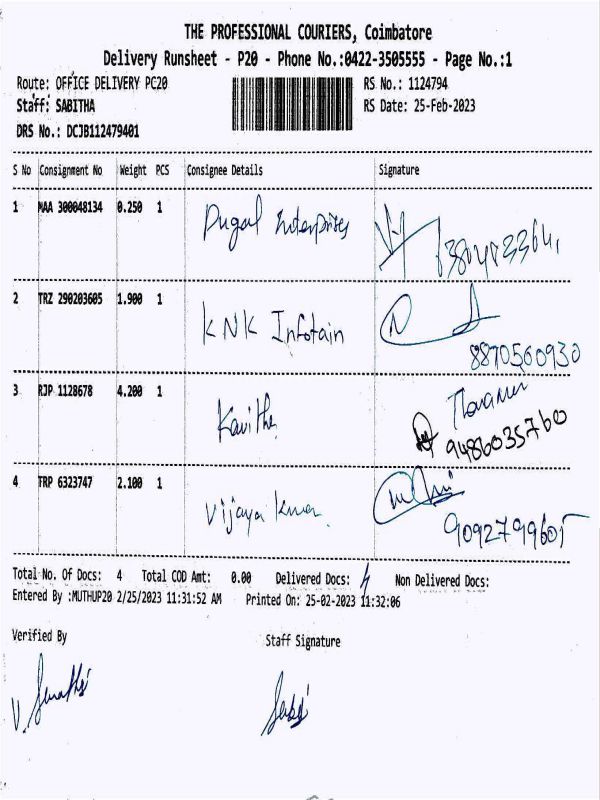 THE PROFESSIONAL COURIERS, Coimbatore
Delivery Runsheet - P20 - Phone No.:0422-3505555 - Page No.:1
Route: OFFICE DELIVERY PC20 RS No.: 1124794
Staff: SABITHA RS Date: 25-Feb-2023
DRS No.: DCJB112479401
S No Consignment No Weight PCS Consignee Details Signature
1 MAA 300048134 0.250 1 Enterprises
2 TRZ 290203605 1.900 1 KNK Infotain
8870560930
3 RJP 1128678 4.200 1 Kavitha
9486035760
4 TRP 6323747 2.100 1 Vijaya Kumar
9092799605
Total No. Of Docs: 4 Total COD Amt: 0.00 Delivered Docs: 4 Non Delivered Docs:
Entered By :MUTHUP20 2/25/2023 11:31:52 AM Printed On: 25-02-2023 11:32:06
Verified By Staff Signature